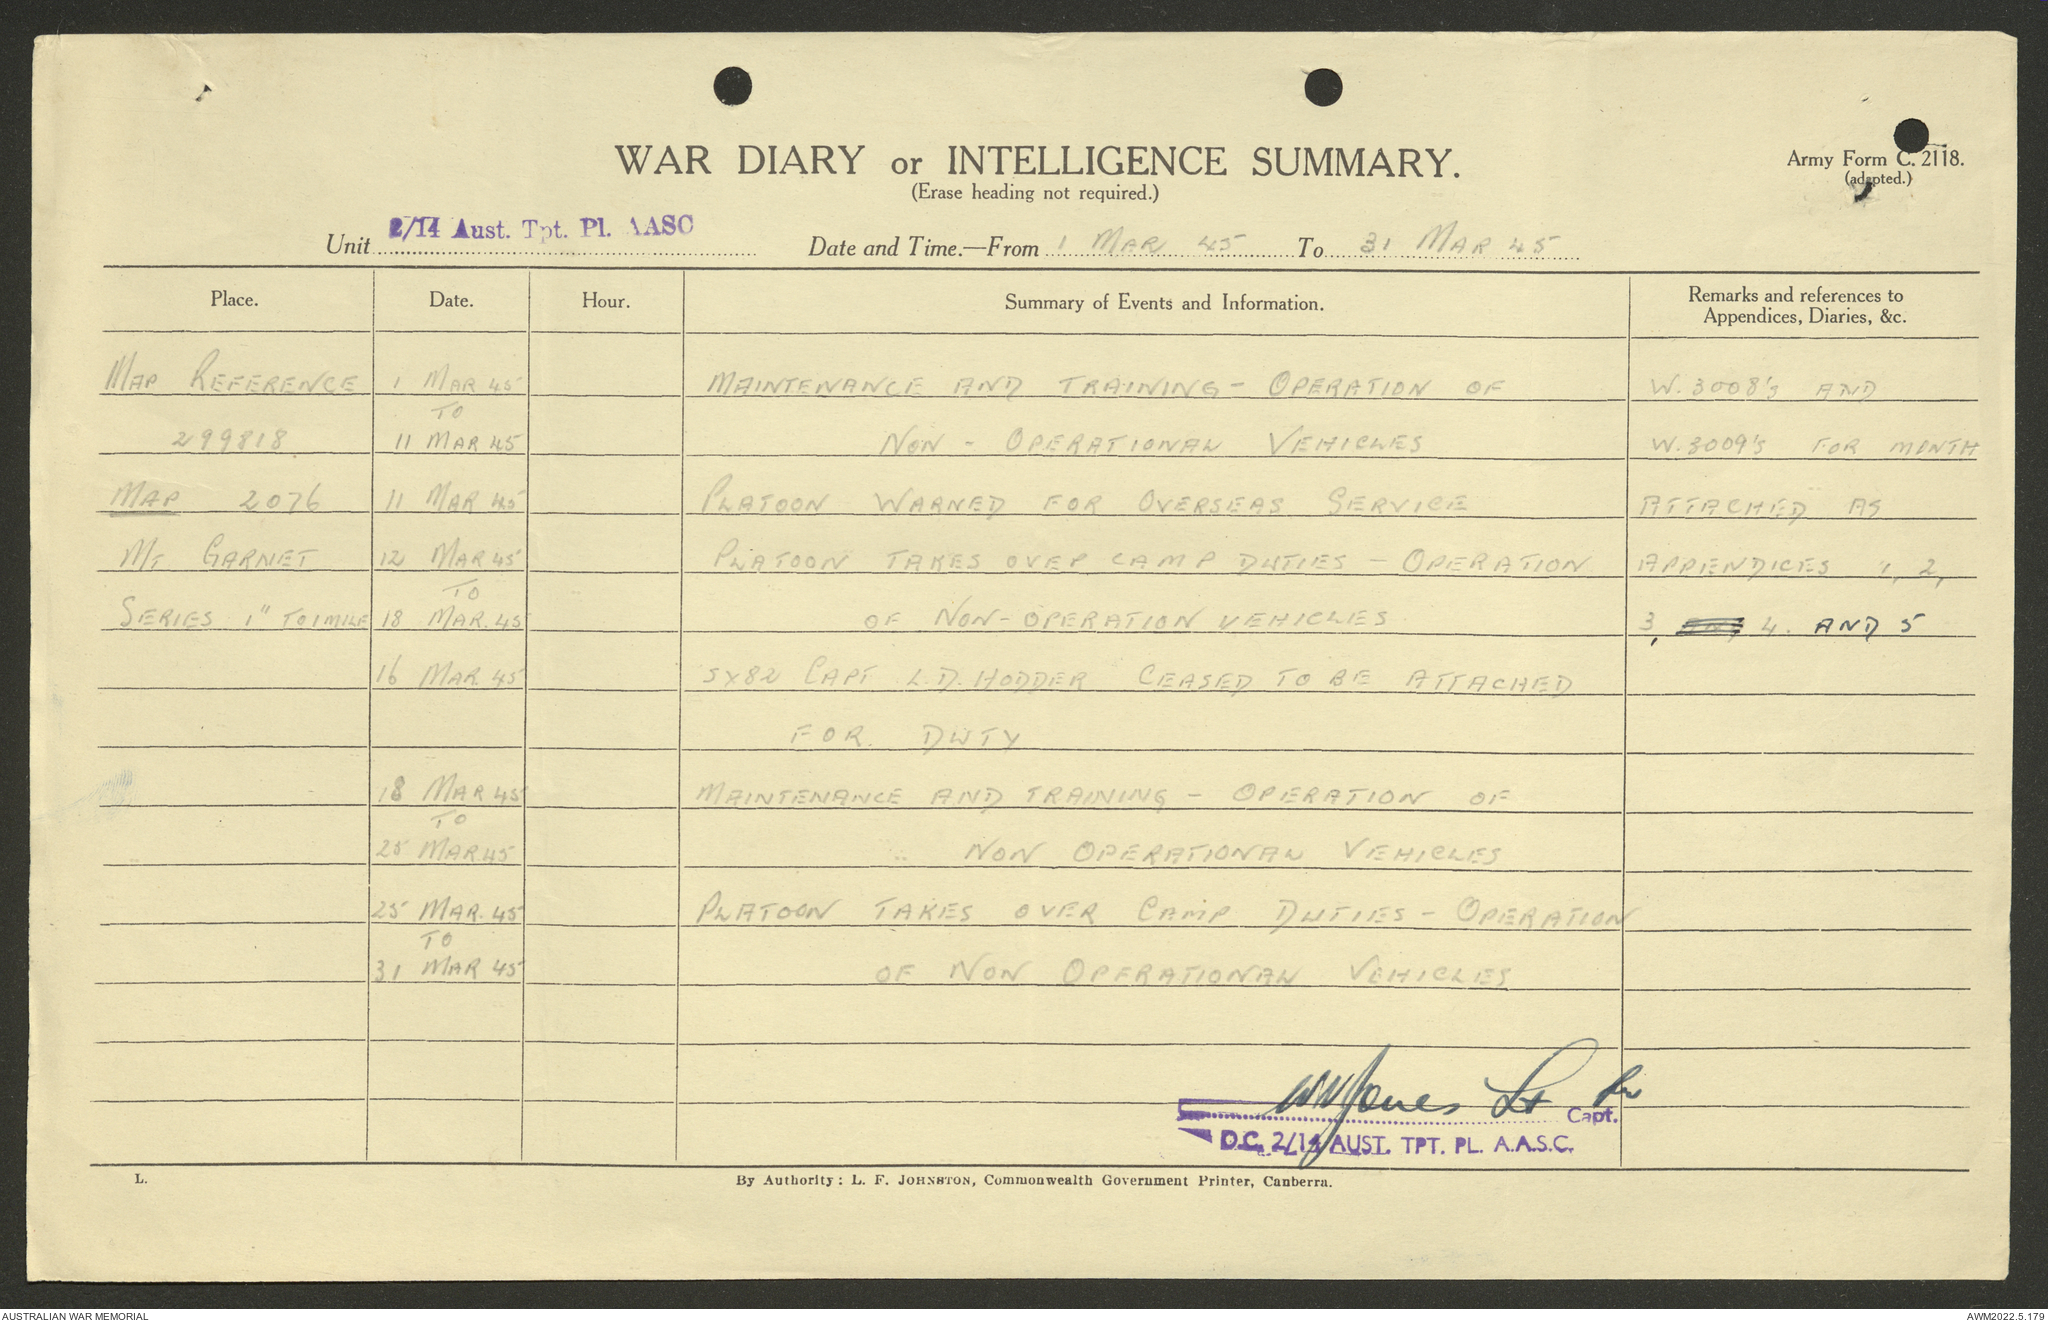 WAR DIARY or INTELLIGENCE SUMMARY.
(Erase heading not required.)
Army Form C. 2118.
(adapted.)
Unit 2/14 Aust. Tpt. Pl. AASC
Date and Time.—From 1 MAR 45 To 31 MAR 45
Place. Date. Hour. Summary of Events and Information. Remarks and references to
Appendices, Diaries, &c.
MAP REFERENCE 1 MAR 45 MAINTENANCE AND TRAINING - OPERATION OF W.3008's AND
TO
299818 11 MAR 45 NON - OPERATIONAL VEHICLES W.3009's FOR MONTH
MAP 2076 11 MAR 45 PLATOON WARNED FOR OVERSEAS SERVICE ATTACHED AS
MT GARNET 12 MAR 45 PLATOON TAKES OVER CAMP DUTIES - OPERATION APPENDICES 1, 2,
TO
SERIES 1" TO 1 MILE 18 MAR. 45 OF NON-OPERATION VEHICLES 3, 4. AND 5
16 MAR. 45 SX82 CAPT L.D. HODDER CEASED TO BE ATTACHED
FOR DUTY
18 MAR 45 MAINTENANCE AND TRAINING - OPERATION OF
TO
25 MAR 45 NON OPERATIONAL VEHICLES
25 MAR. 45 PLATOON TAKES OVER CAMP DUTIES - OPERATION
TO
31 MAR 45 OF NON OPERATIONAL VEHICLES
Jones Lt
Capt.
O.C. 2/14 AUST. TPT. PL. A.A.S.C.
L.
By Authority: L. F. JOHNSTON, Commonwealth Government Printer, Canberra.
AUSTRALIAN WAR MEMORIAL
AWM2022.5.179